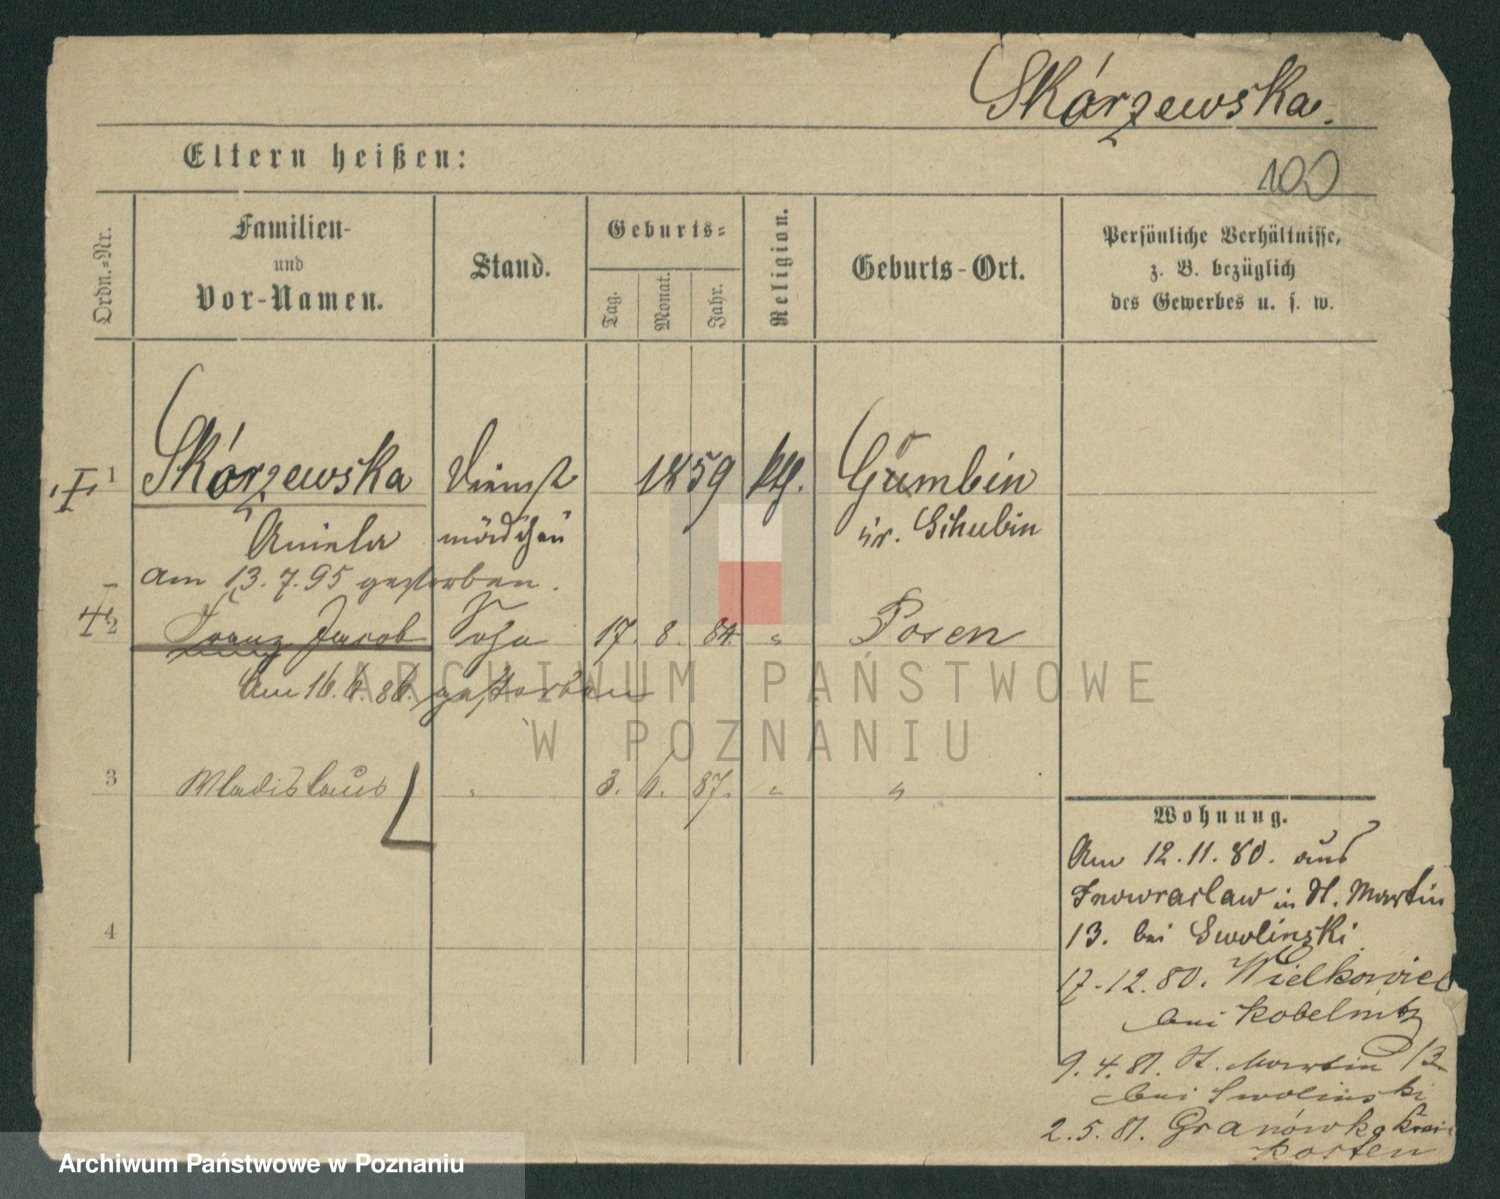 Skórzewska.
Eltern heißen:
100
Ordn.-Nr.
Familien-
und
Vor-Namen.
Stand.
Geburts-
Tag.
Monat.
Jahr.
Religion.
Geburts-Ort.
Persönliche Verhältnisse,
z. B. bezüglich
des Gewerbes u. s. w.
1 Skórzewska Dienst 1859 kth. Gąmbin
Aniela mädchen Kr. Schubin
am 13. 7. 95 gestorben.
2 Franz Jacob Sohn 17. 8. 84. " Posen
Am 16. 6. 86. gestorben
3 Wladislaus " 3. 6. 87. " "
4
Wohnung.
Am 12. 11. 80. aus
Inowraclaw in St. Martin
13. bei Swolinski
17. 12. 80. Wielkowiec
bei Kobelnitz
9. 4. 81. St. Martin 13
bei Swolinski
2. 5. 81. Granówko Kreis
Kosten
ARCHIWUM PAŃSTWOWE
W POZNANIU
Archiwum Państwowe w Poznaniu